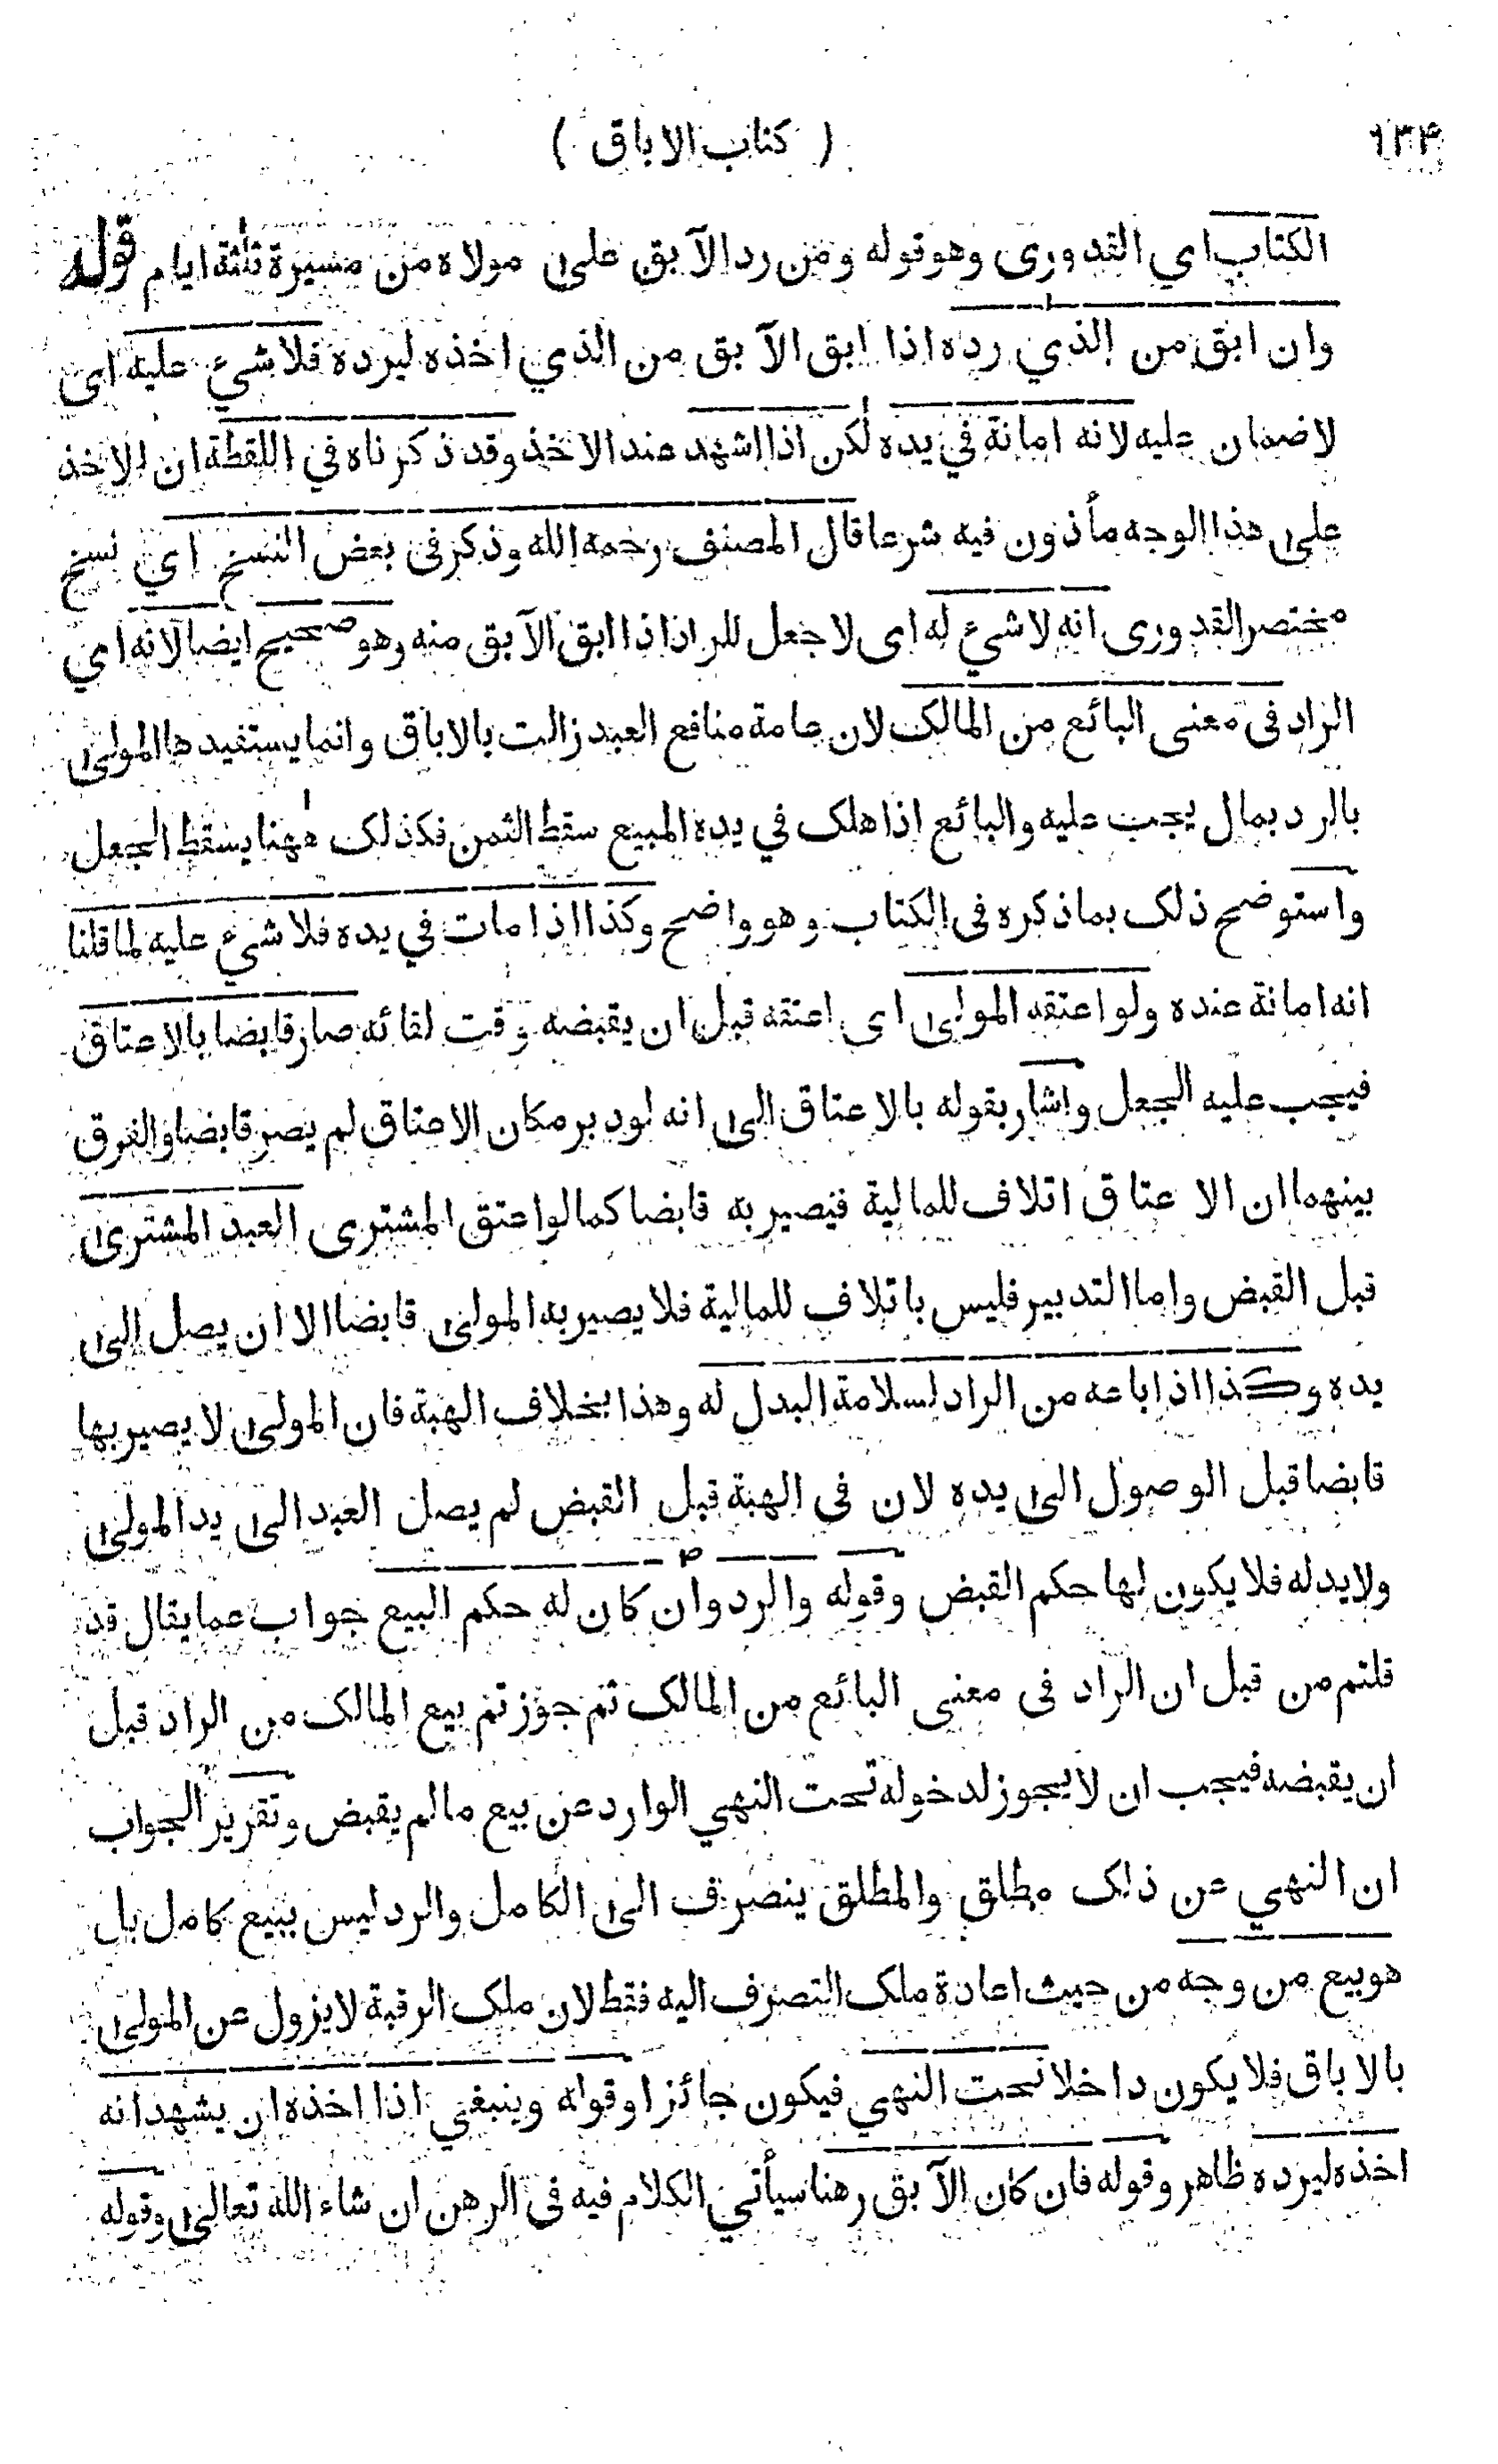 ۱۳۴ ( كتاب الاباق )
الكتاب اي القدورى وهو قوله ومن رد الآبق على مولاه من مسيرة ثلثة ايام قوله
وان ابق من الذي رده اذا ابق الآبق من الذي اخذه ليرده فلاشيء عليه اى
لاضمان عليه لانه امانة في يده لكن اذا اشهد عند الاخذ وقد ذكرناه في اللقطة ان الاخذ
على هذا الوجه مأذون فيه شرعا قال المصنف رحمه الله وذكر فى بعض النسخ اي نسخ
مختصر القدورى انه لاشيء له اى لا جعل للراد اذا ابق الآبق منه وهو صحيح ايضا لانه اي
الراد فى معنى البائع من المالك لان عامة منافع العبد زالت بالاباق وانما يستفيدها المولى
بالرد بمال يجب عليه والبائع اذا هلك في يده المبيع سقط الثمن فكذلك ههنا يسقط الجعل
واستوضح ذلك بما ذكره فى الكتاب وهو واضح وكذا اذا مات في يده فلاشيء عليه لما قلنا
انه امانة عنده ولو اعتقه المولى اى اعتقه قبل ان يقبضه وقت لقائه صار قابضا بالاعتاق
فيجب عليه الجعل واشار بقوله بالاعتاق الى انه لو دبر مكان الاعتاق لم يصر قابضا والفرق
بينهما ان الاعتاق اتلاف للمالية فيصير به قابضا كما لو اعتق المشترى العبد المشترى
قبل القبض واما التدبير فليس باتلاف للمالية فلا يصير به المولى قابضا الا ان يصل الى
يده وكذا اذا باعه من الراد لسلامة البدل له وهذا بخلاف الهبة فان المولى لا يصير بها
قابضا قبل الوصول الى يده لان فى الهبة قبل القبض لم يصل العبد الى يد المولى
ولا بدله فلا يكون لها حكم القبض وقوله والرد وان كان له حكم البيع جواب عما يقال قد
قلتم من قبل ان الراد فى معنى البائع من المالك ثم جوزتم بيع المالك من الراد قبل
ان يقبضه فيجب ان لا يجوز لدخوله تحت النهي الوارد عن بيع ما لم يقبض وتقرير الجواب
ان النهي عن ذلك مطلق والمطلق ينصرف الى الكامل والرد ليس ببيع كامل بل
هو بيع من وجه من حيث اعادة ملك التصرف اليه فقط لان ملك الرقبة لا يزول عن المولى
بالاباق فلا يكون داخلا تحت النهي فيكون جائزا وقوله وينبغي اذا اخذه ان يشهد انه
اخذه ليرده ظاهر وقوله فان كان الآبق رهنا سيأتي الكلام فيه فى الرهن ان شاء الله تعالى وقوله